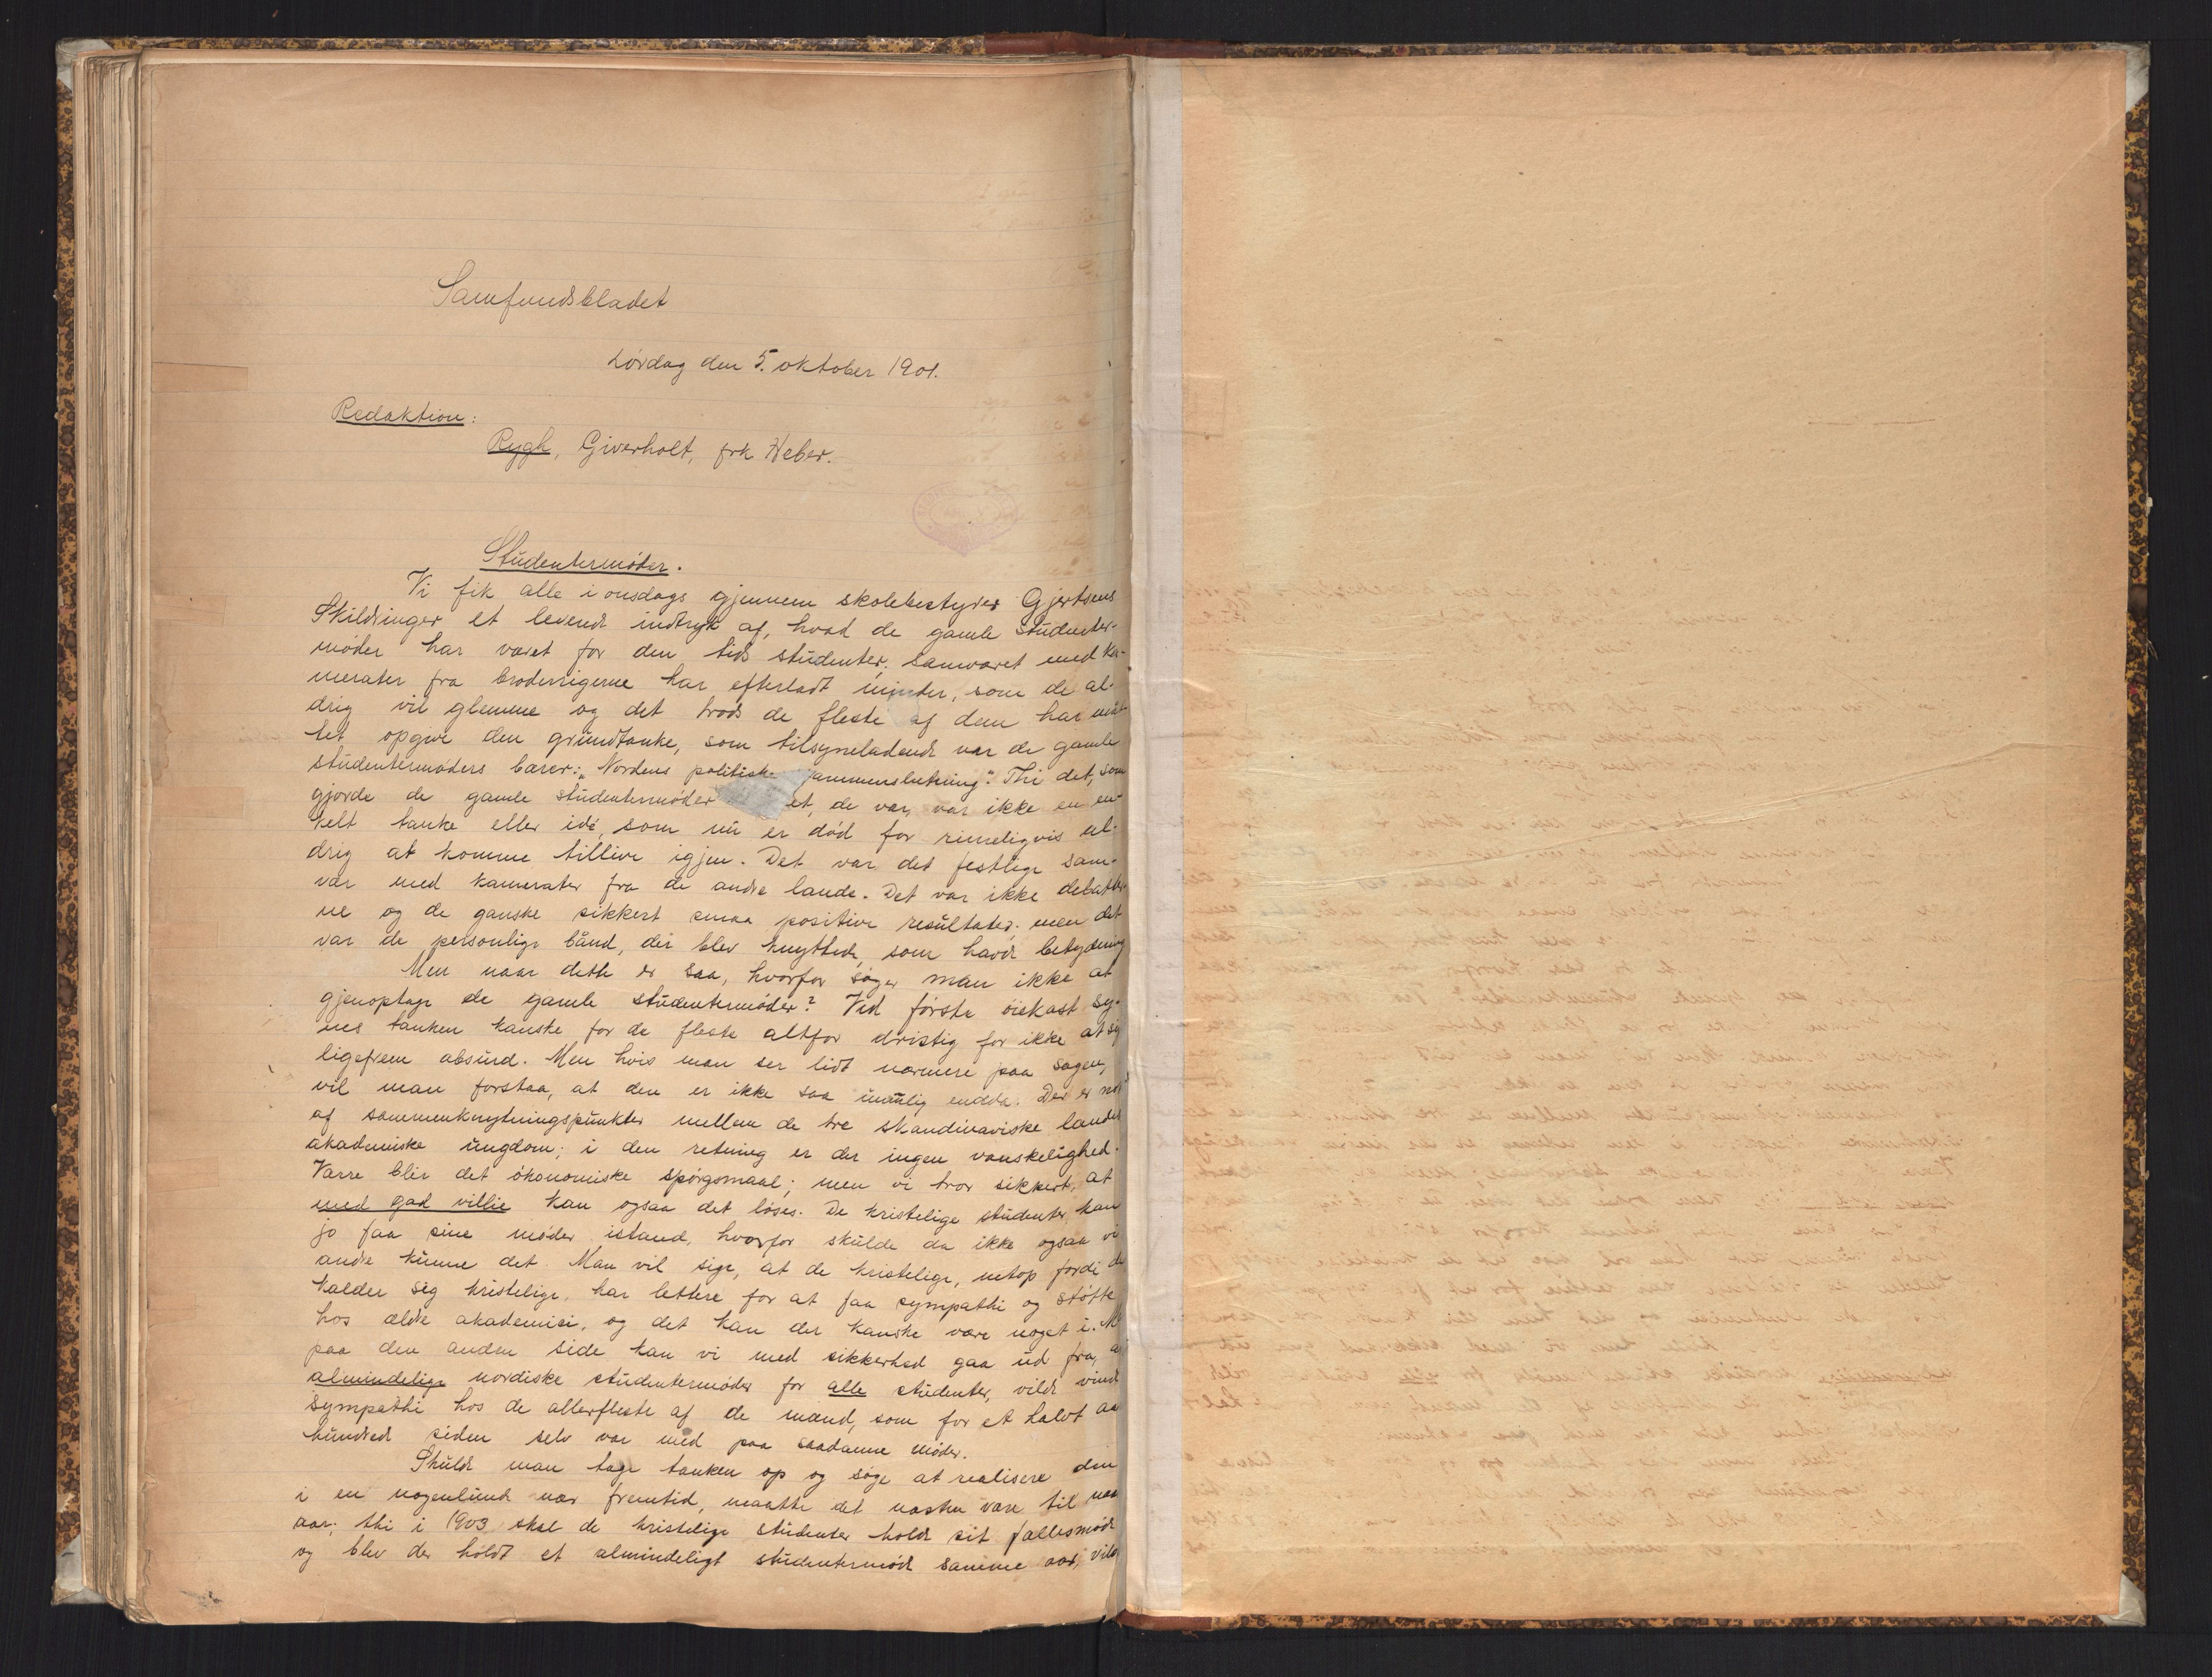 Samfundsbladet
Lørdag den 5. oktober 1901.
Redaktion:
Rygh, Giverholt, frk Heber.
Studentermøder.
Vi fik alle i onsdags gjennem skolebestyrer Gjertsens
Skildringer et levende indtryk af, hvad de gamle studenter-
møder har været for den tids studenter. Samværet med ka-
merater fra broderrigerne har efterladt minder, som de al-
drig vil glemme og det trods de fleste af dem har maat-
tet opgive den grundtanke, som tilsyneladende var de gamle
studentermøders bærer: „Nordens politiske sammenslutning". Thi det, som
gjorde de gamle studentermøder et, de var, var ikke en en-
kelt tanke eller idé, som nu er død for rimeligvis al-
drig at komme tillive igjen. Det var det festlige sam-
vær med kamerater fra de andre lande. Det var ikke debatter-
ne og de ganske sikkert smaa positive resultater, men det
var de personlige bånd, der blev knyttede, som havde betydning
Men naar dette er saa, hvorfor søger man ikke at
gjenoptage de gamle studentermøder? Ved første øiekast sy-
nes tanken kanske for de fleste altfor dristig for ikke at sige
ligefrem absurd. Men hvis man ser lidt nærmere paa sagen,
vil man forstaa, at den er ikke saa umulig endda. Der er nok
af sammenknytningspunkter mellem de tre skandinaviske landes
akademiske ungdom; i den retning er der ingen vanskelighed.
Værre blir det økonomiske spørgsmaal; men vi tror sikkert, at
med god villie kan ogsaa det løses. De kristelige studenter kan
jo faa sine møder istand, hvorfor skulde da ikke ogsaa vi
andre kunne det. Man vil sige, at de kristelige, netop fordi de
kalder sig kristelige, har lettere for at faa sympathi og støtte
hos ældre akademici, og det kan der kanske være noget i. Me
paa den anden side kan vi med sikkerhed gaa ud fra, a
almindelige nordiske studentermøder for alle studenter, vilde vinde
sympathi hos de allerfleste af de mænd, som for et halvt aar
hundred siden selv var med paa saadanne møder.
Skulde man tage tanken op og søge at realisere den
i en nogenlunde nær fremtid, maatte det næsten være til næste
aar; thi i 1903 skal de kristelige studenter holde sit fællesmøde
og blev der holdt et almindeligt studentermøde samme aar, vilde